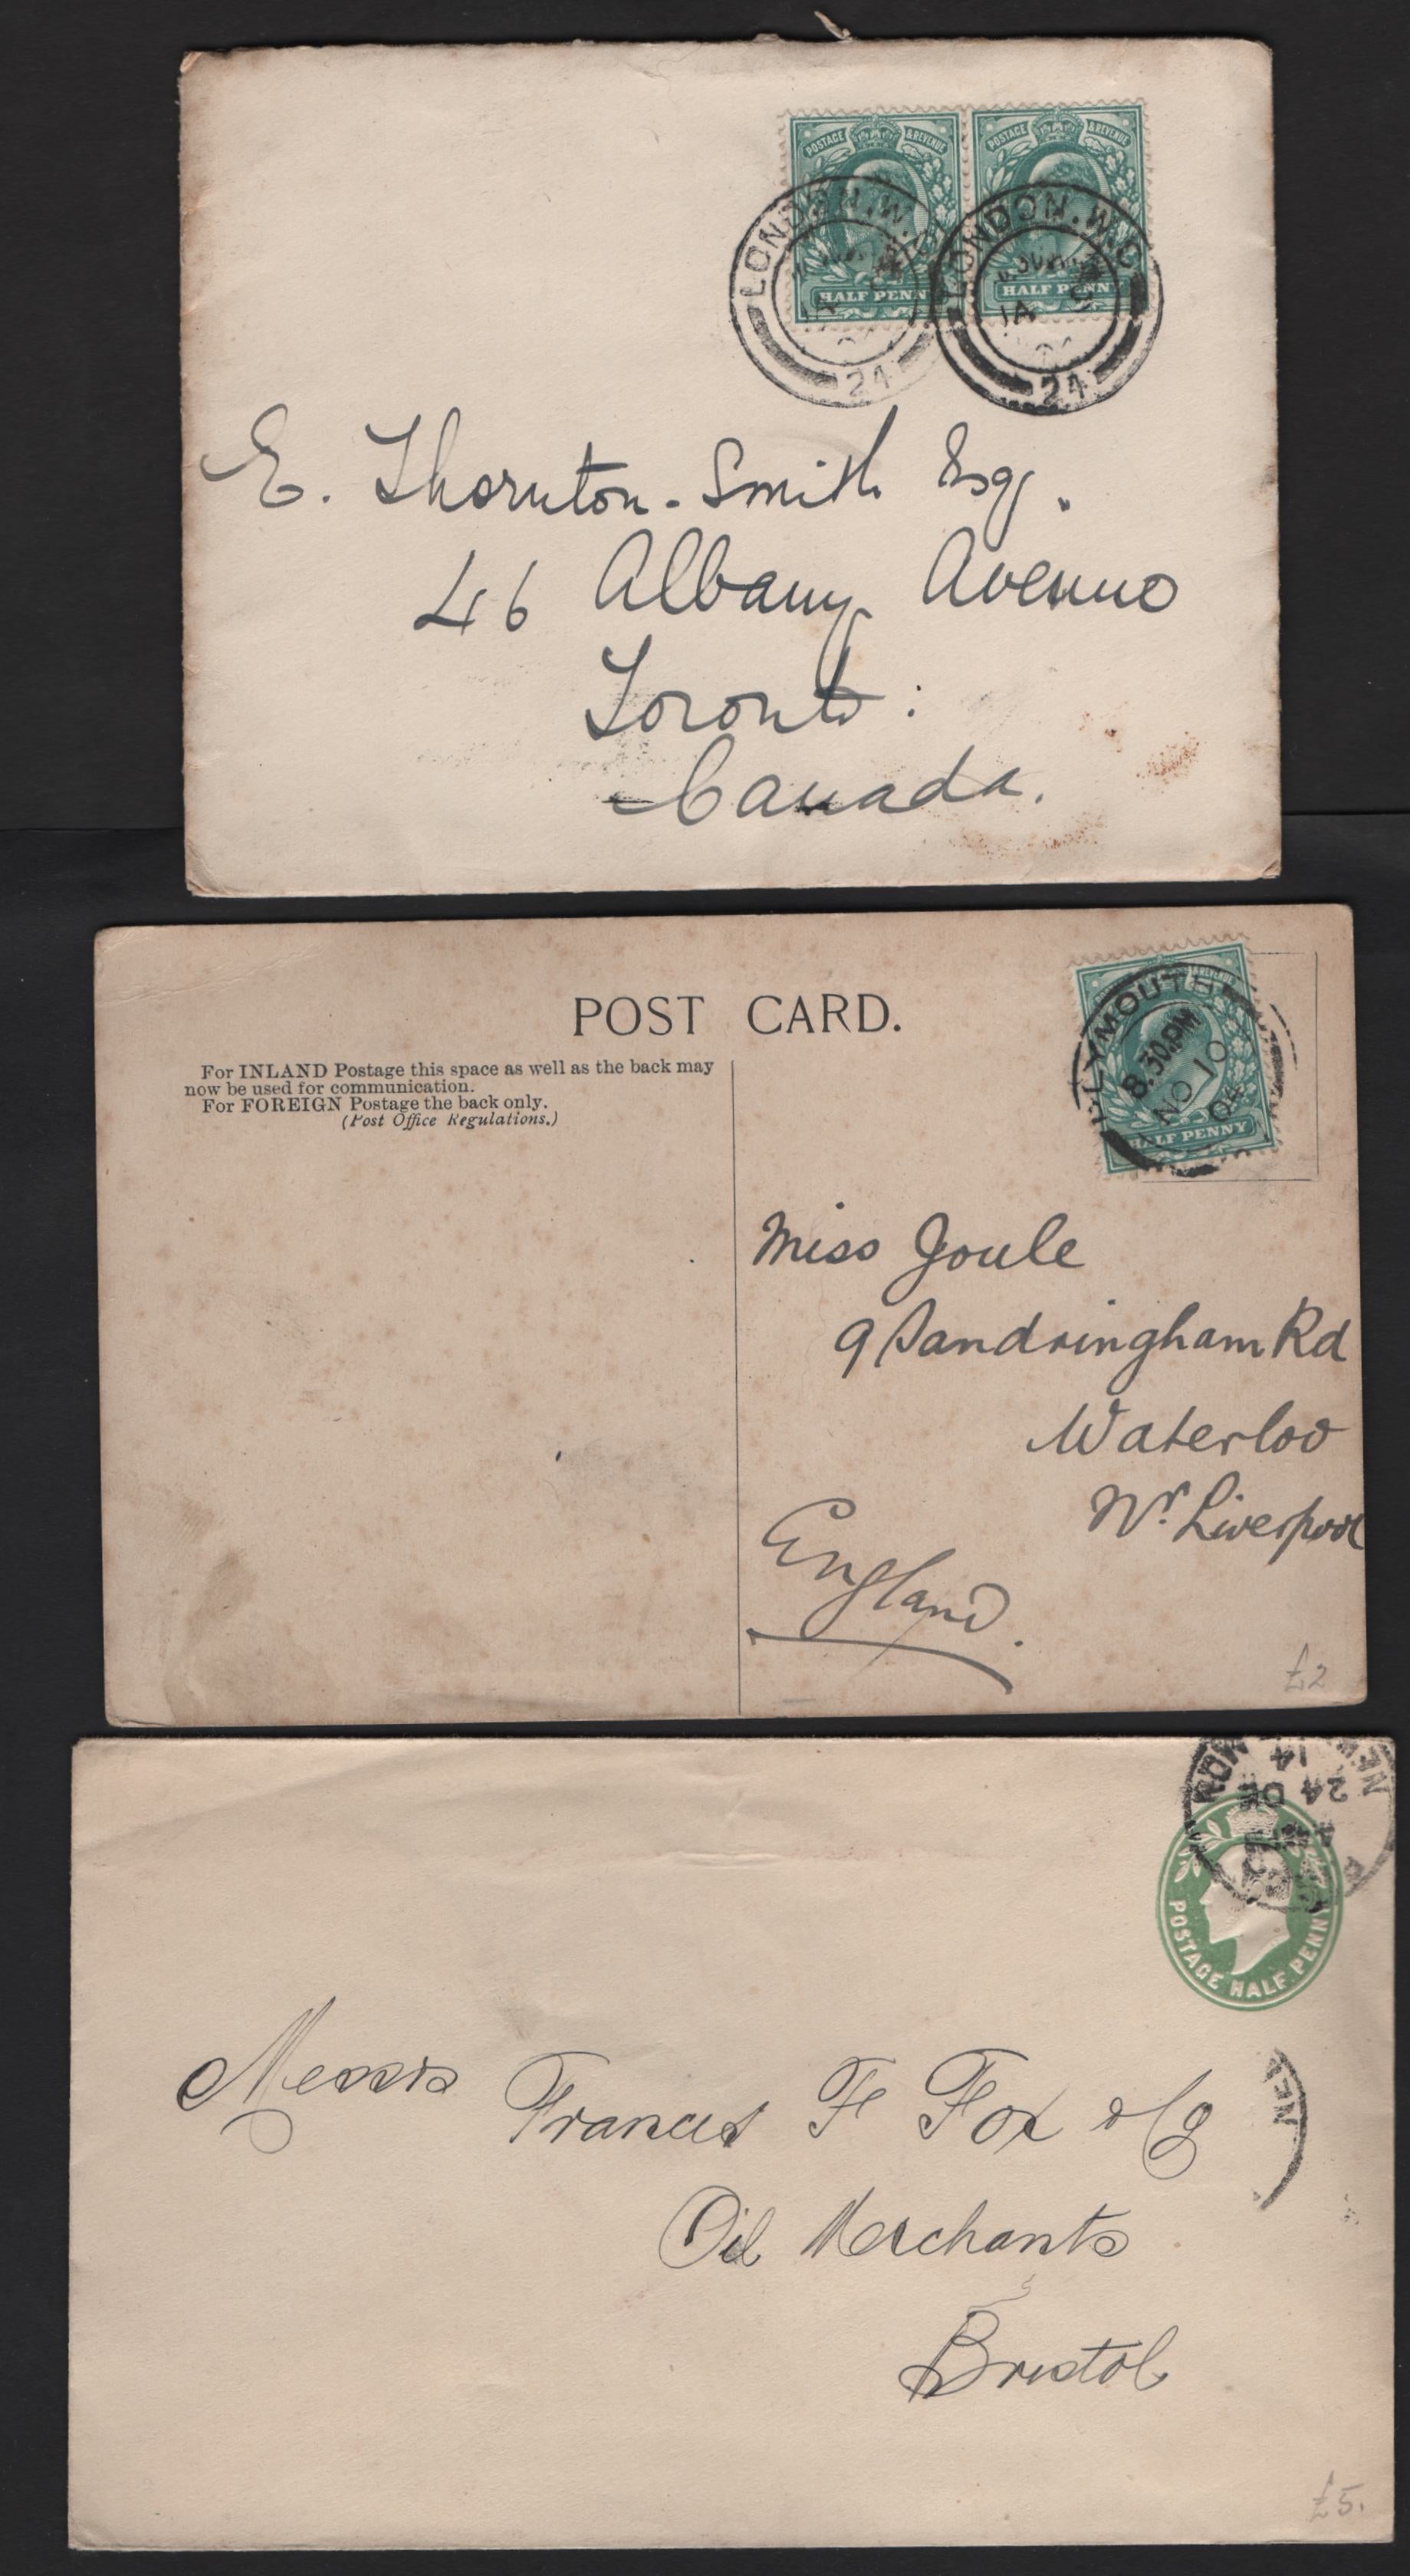 POSTAGE & REVENUE POSTAGE & REVENUE
HALF PENN HALF PENNY
LONDON.W. LONDON.W.C
JA JA
24 24
E. Thornton-Smith Esq.
46 Albany Avenue
Toronto:
Canada.
POST CARD.
For INLAND Postage this space as well as the back may
now be used for communication.
For FOREIGN Postage the back only.
(Post Office Regulations.)
PLYMOUTH
8.30.PM
NO 10
04
HALF PENNY
Miss Joule
9 Sandringham Rd
Waterloo
Nr. Liverpool
England.
£2
24 DE
14
POSTAGE HALF PENNY
NEW
Messrs Francis F Fox & Co
Oil Merchants
Bristol
£5.